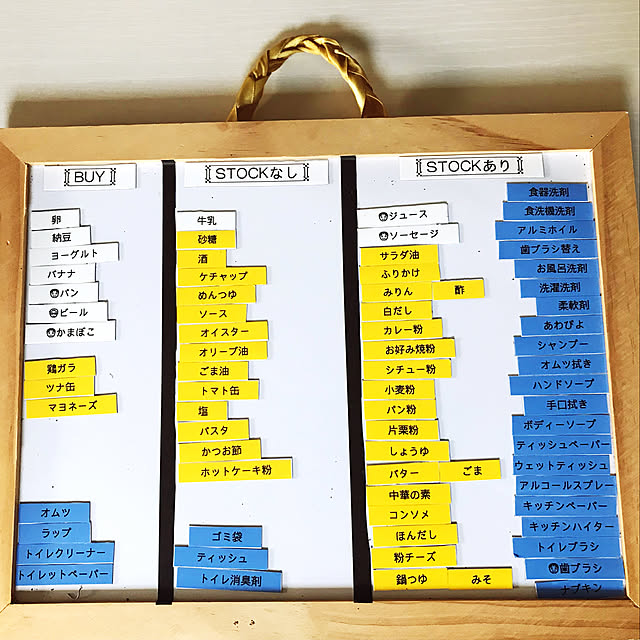 BUY
卵
納豆
ヨーグルト
バナナ
パン
ビール
かまぼこ
鶏ガラ
ツナ缶
マヨネーズ
オムツ
ラップ
トイレクリーナー
トイレットペーパー
STOCKなし
牛乳
砂糖
酒
ケチャップ
めんつゆ
ソース
オイスター
オリーブ油
ごま油
トマト缶
塩
パスタ
かつお節
ホットケーキ粉
ゴミ袋
ティッシュ
トイレ消臭剤
STOCKあり
ジュース
ソーセージ
サラダ油
ふりかけ
みりん 酢
白だし
カレー粉
お好み焼粉
シチュー粉
小麦粉
パン粉
片栗粉
しょうゆ
バター ごま
中華の素
コンソメ
ほんだし
粉チーズ
鍋つゆ みそ
食器洗剤
食洗機洗剤
アルミホイル
歯ブラシ替え
お風呂洗剤
洗濯洗剤
柔軟剤
あわぴよ
シャンプー
オムツ拭き
ハンドソープ
手口拭き
ボディーソープ
ティッシュペーパー
ウェットティッシュ
アルコールスプレー
キッチンペーパー
キッチンハイター
トイレブラシ
歯ブラシ
ナプキン